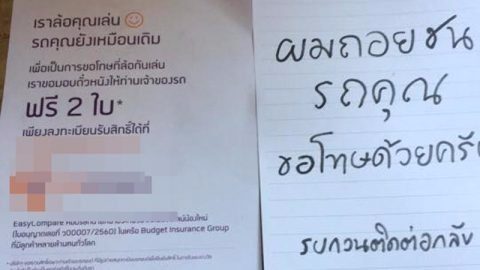 เราล้อคุณเล่น
รถคุณยังเหมือนเดิม
เพื่อเป็นการขอโทษที่ล้อกันเล่น
เราขอมอบตั๋วหนังให้ท่านเจ้าของรถ
ฟรี 2 ใบ*
เพียงลงทะเบียนรับสิทธิ์ได้ที่
EasyCompare
(ใบอนุญาตเลขที่ ว00007/2560) ในเครือ Budget Insurance Group
ที่มีลูกค้าหลายล้านคนทั่วโลก
ผมถอยชน
รถคุณ
ขอโทษด้วยครับ
รบกวนติดต่อกลับ